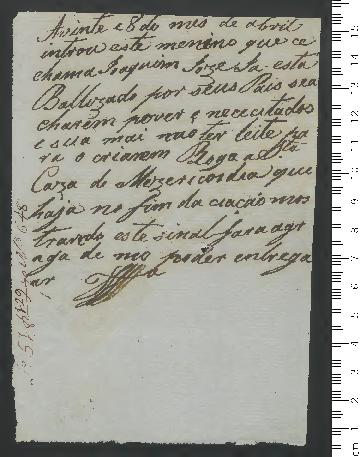 A vinte e 8 do mes de abril
introu este menino que ce
chama Joaquem Joze Ja está
Baltizado por seus Pais sea
charem pover e necicitados
e sua mai nao ter leite pa
ra o criarem Roga a Stª
Caza de Mezericordia que
haja no fim da ciação mos
trando este sinal fara a
aga de mo poder entrega
ar